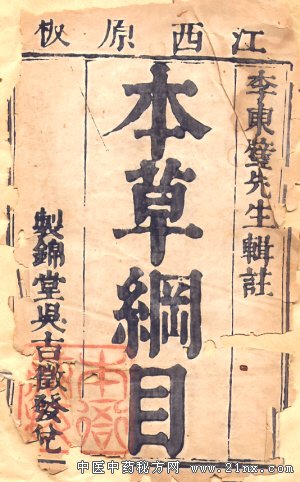 江西原板
李東璧先生輯註
本草綱目
製錦堂吳吉徵發兌
中医中药秘方网 www.21nx.com